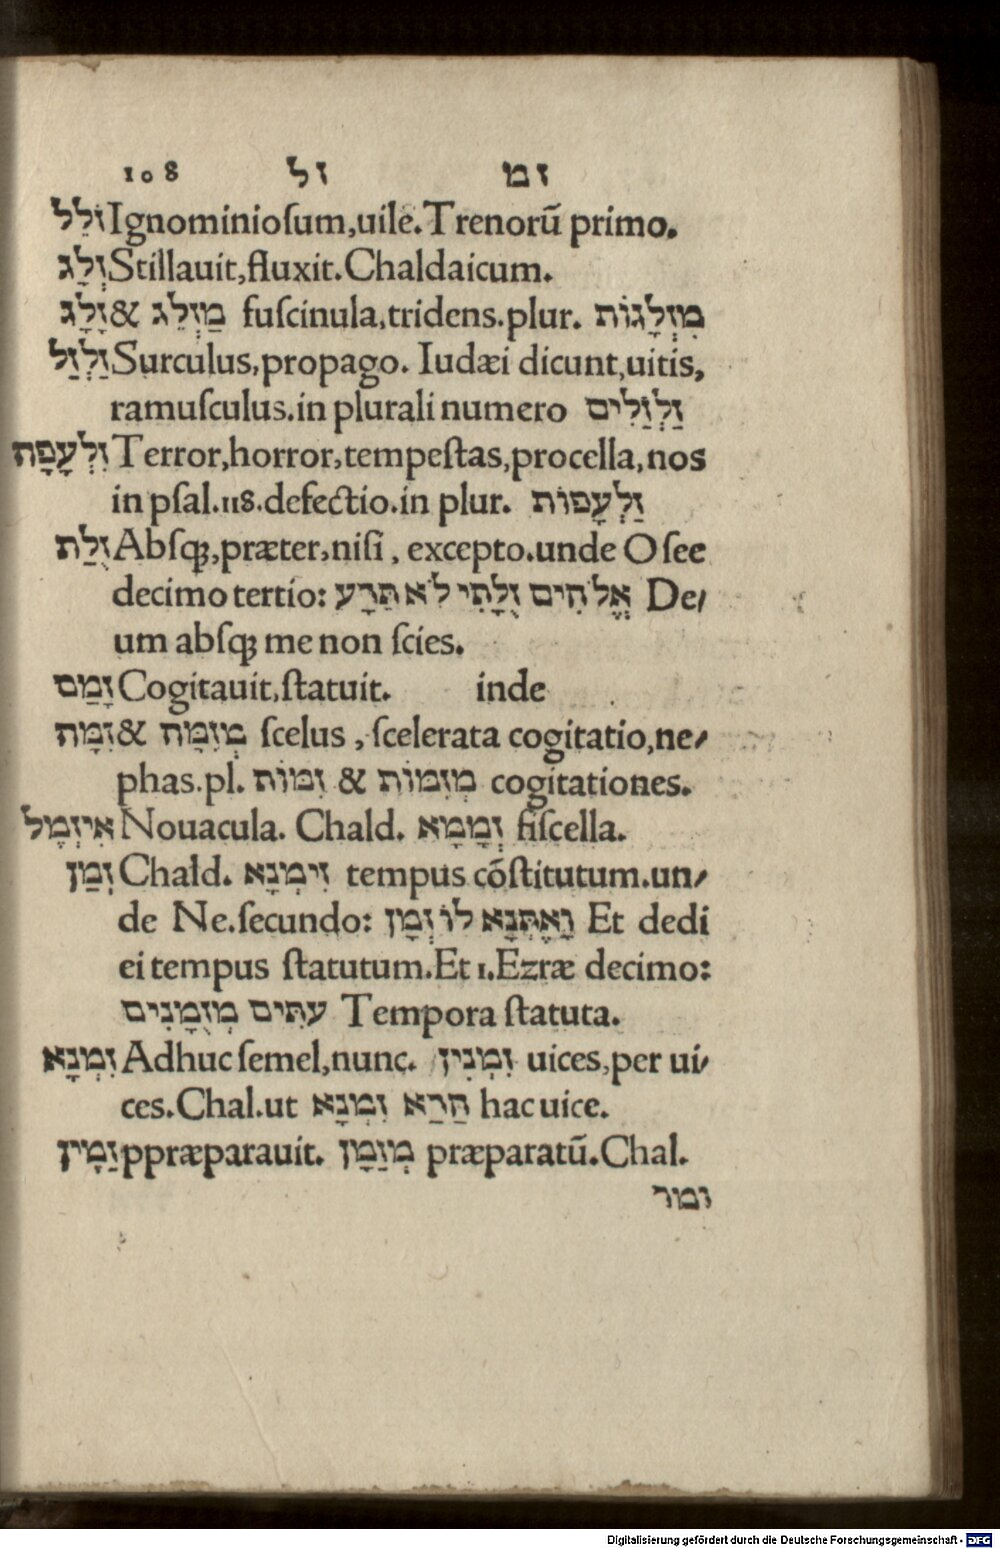 108 זל זמ
זֹולֵל Ignominioſum,uile.Trenorũ primo.
זְלָג Stillauit,fluxit.Chaldaicum.
זָלָג & מַזְלֵג fuſcinula,tridens.plur. מִזְלָגוֹת
זַלְזַל Surculus,propago. Iudæi dicunt,uitis,
ramuſculus.in plurali numero זַלְזַלִים
זִלְעָפָה Terror,horror,tempeſtas,procella,nos
in pſal.118.defectio.in plur. זַלְעָפוֹת
זֻלַת Abſq;,præter,niſi, excepto.unde Oſee
decimo tertio: אֱלֹהִים זֻלָתִי לֹא תֵּרָע De/
um abſq; me non ſcies.
זָמַם Cogitauit,ſtatuit. inde
זִמָּה & מְזִמָּה ſcelus, ſcelerata cogitatio,ne/
phas.pl. זִמּוֹת & מְזִמוֹת cogitationes.
אִיזְמֶל Nouacula. Chald. זְמָמָא fiſcella.
זְמַן Chald. זִימְנָא tempus cõſtitutum.un/
de Ne.ſecundo: וָאֶתְּנָא לוֹ זְמָן Et dedi
ei tempus ſtatutum.Et 1.Ezræ decimo:
עִתִּים מְזֻמָּנִים Tempora ſtatuta.
זִמְנָא Adhuc ſemel,nunc. זִמְנִין uices,per ui/
ces.Chal.ut הַדַא זִמְנָא hac uice.
זַמִין ppræparauit. מְזַמָּן præparatũ.Chal.
זמר
Digitalisierung gefördert durch die Deutsche Forschungsgemeinschaft - DFG